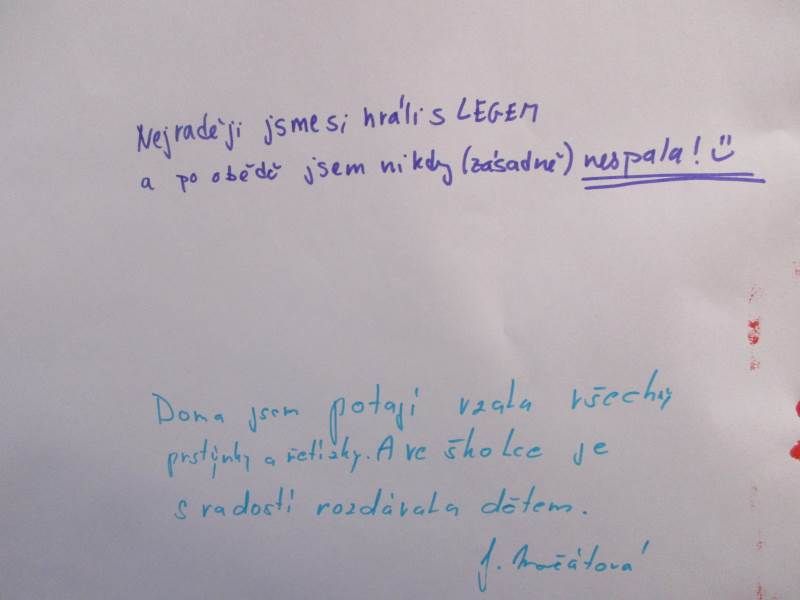 Nejraději jsme si hráli s LEGEM
a po obědě jsem nikdy (zásadně) nespala!
Doma jsem potají vzala všechny
prstýnky a řetízky. A ve školce je
s radostí rozdávala dětem.
J.